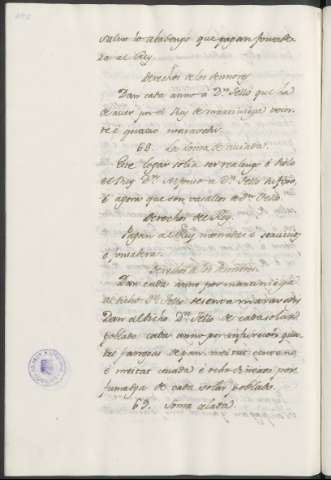 salvo lo abadengo que pagan fonsade-
ra al Rey.
Derechos de los Sennores
Dan cada anno a Dn. Tello que ha
de aver por el Rey de martiniega veinte
te e quatro maravedis.
68. La Lomba de
Este logar solia ser realengo e diolo
el Rey Dn. Alfonso a Dn. Tello su fijo,
e agora que son vasallos de Dn. Tello.
Derechos del Rey.
Pagan al Rey monedas e servicios
e fonsadera.
Derechos de los Sennores.
Dan cada anno por martiniega
al dicho Dn. Tello sesenta maravedis
Dan al dicho Dn. Tello de cada solar
poblado cada anno por infurcion qua-
tro fanegas de pan, meitat centeno,
e meitat cevada e ocho dineros por
fumadga de cada solar poblado.
69. Soma